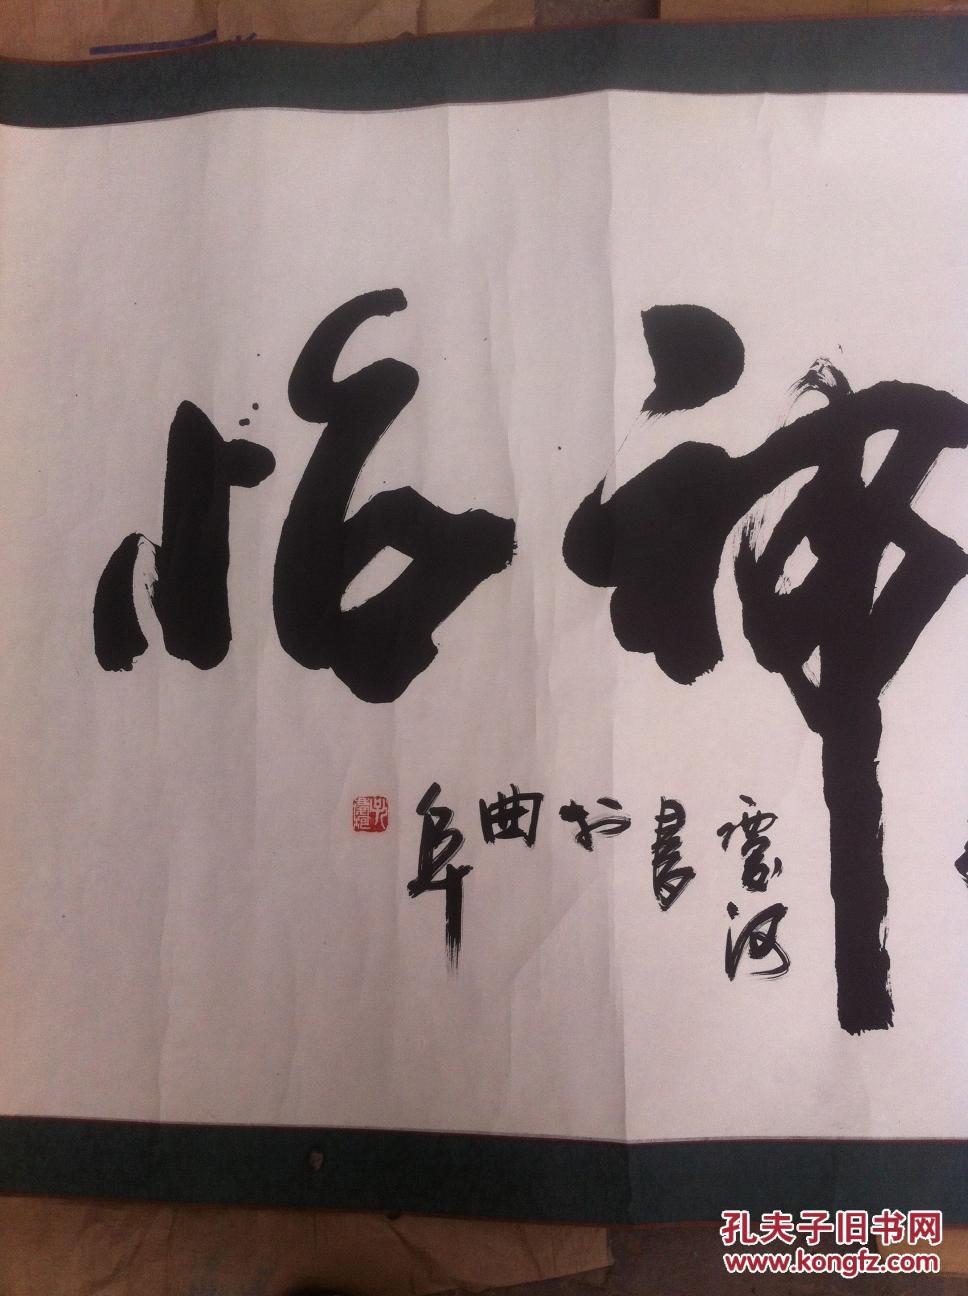 神怡
河
書
於
曲
阜
孔夫子旧书网
www.kongfz.com